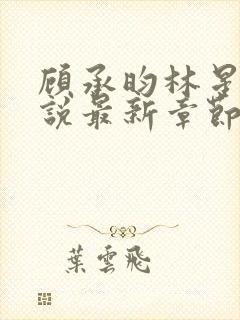 顾承昀林星
說最新章節
葉雲飛